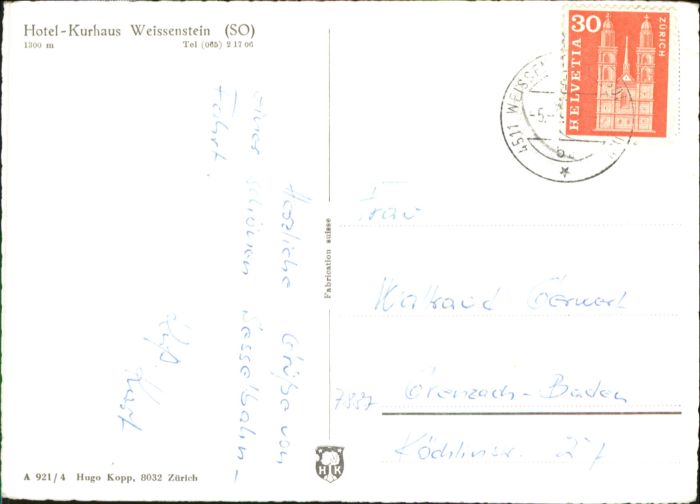 Hotel-Kurhaus Weissenstein (SO)
1300 m Tel (065) 2 17 06
Herzliche Grüße von
einer schönen Sesselbahn-
Fahrt.
Kurt
Fabrication suisse
A 921/4 Hugo Kopp, 8032 Zürich
HK
30
ZÜRICH
HELVETIA
4511 WEISSEN
-5.-
Frau
Waltraud
7887 Grenzach-Baden
27